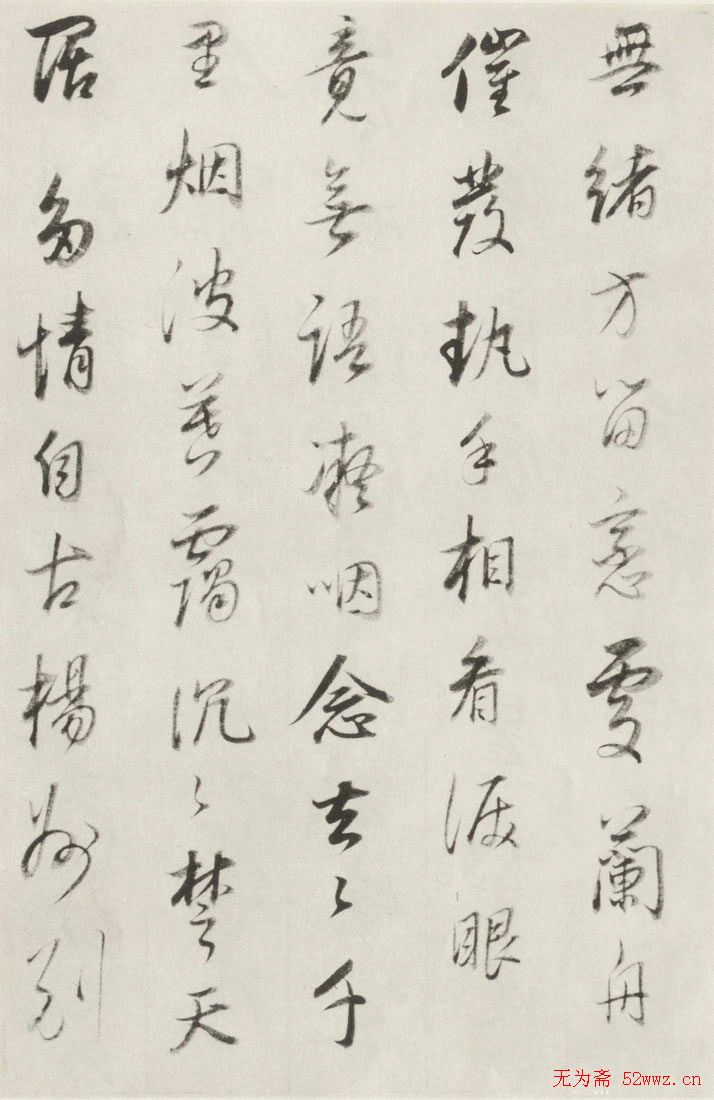 無緒方留戀處蘭舟
催發執手相看淚眼
竟無語凝咽念去々千
里烟波暮靄沉々楚天
闊多情自古傷離別
无为斋 52wwz.cn